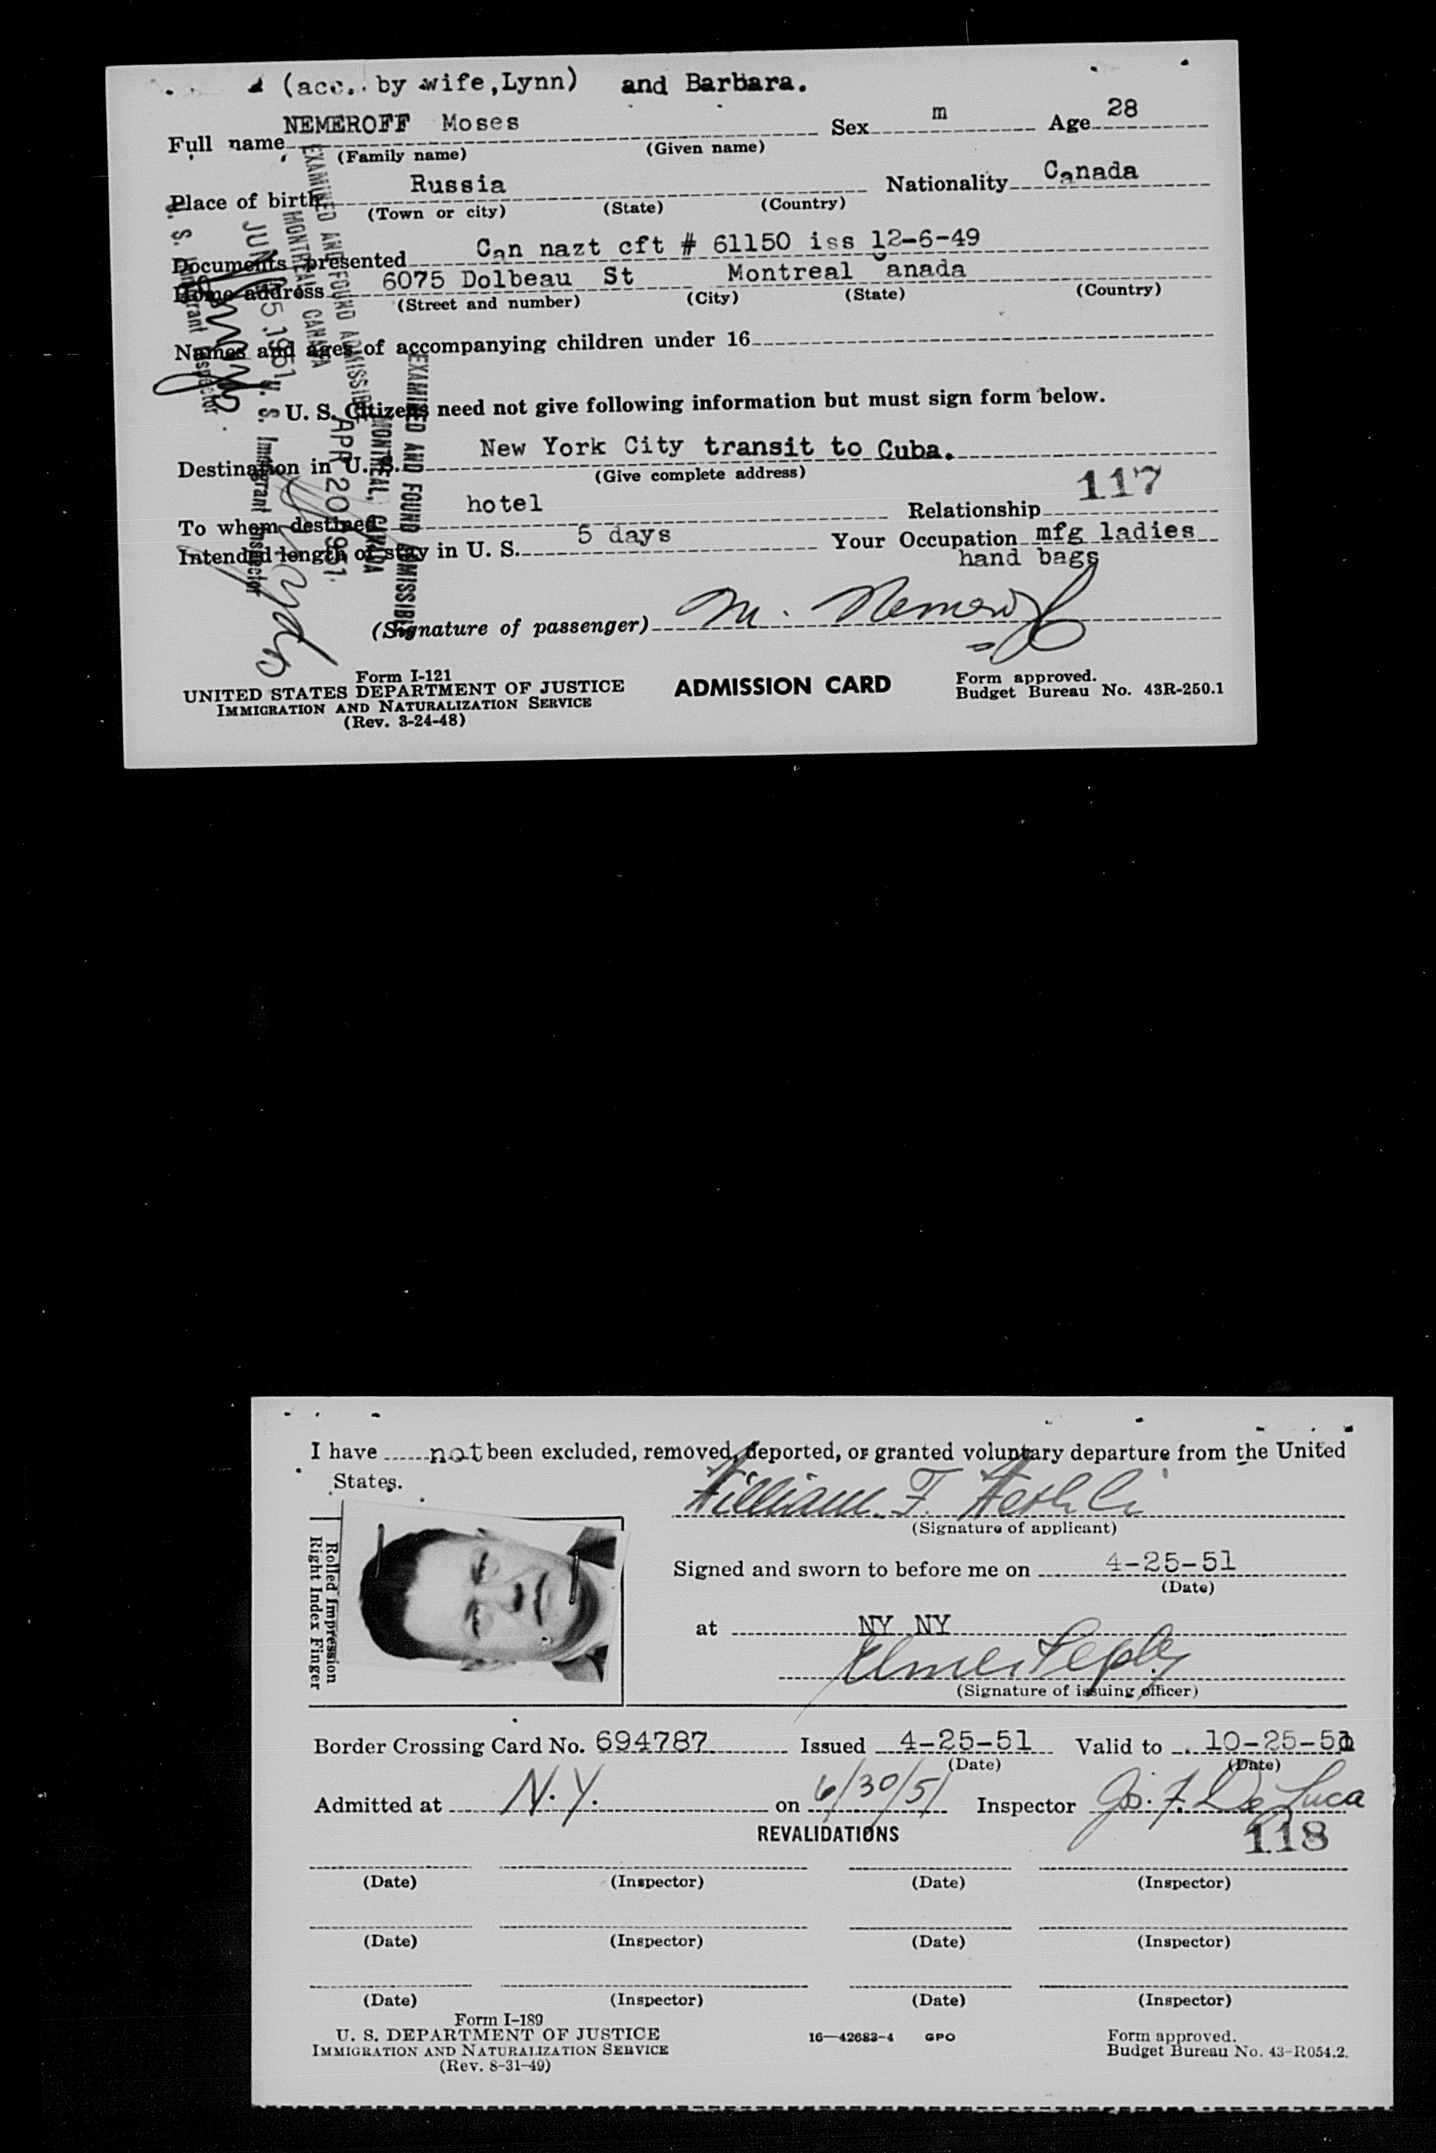 (acc. by wife,Lynn) and Barbara.
Full name NEMEROFF Moses Sex m Age 28
(Family name) (Given name)
Place of birth Russia Nationality Canada
(Town or city) (State) (Country)
Documents presented Can nazt cft # 61150 iss 12-6-49
Home address 6075 Dolbeau St Montreal Canada
(Street and number) (City) (State) (Country)
Names and ages of accompanying children under 16
U. S. Citizens need not give following information but must sign form below.
Destination in U. S. New York City transit to Cuba.
(Give complete address)
117
To whom destined hotel Relationship
Intended length of stay in U. S. 5 days Your Occupation mfg ladies
hand bags
(Signature of passenger) M. Nemeroff
Form I-121
UNITED STATES DEPARTMENT OF JUSTICE
IMMIGRATION AND NATURALIZATION SERVICE
(Rev. 3-24-48)
ADMISSION CARD
Form approved.
Budget Bureau No. 43R-250.1
EXAMINED AND FOUND ADMISSIBLE
MONTREAL, CANADA
JUN 5 1951
U. S. Immigrant Inspector
EXAMINED AND FOUND ADMISSIBLE
MONTREAL, CANADA
APR 20 1951
U. S. Immigrant Inspector
I have not been excluded, removed, deported, or granted voluntary departure from the United
States.
William F.
(Signature of applicant)
Rolled Impression
Right Index Finger
Signed and sworn to before me on 4-25-51
(Date)
at NY NY
Elmer
(Signature of issuing officer)
Border Crossing Card No. 694787 Issued 4-25-51 Valid to 10-25-51
(Date) (Date)
Admitted at N.Y. on 6/30/51 Inspector Jos. F. De Luca
REVALIDATIONS 118
(Date) (Inspector) (Date) (Inspector)
(Date) (Inspector) (Date) (Inspector)
(Date) (Inspector) (Date) (Inspector)
Form I-189
U. S. DEPARTMENT OF JUSTICE
IMMIGRATION AND NATURALIZATION SERVICE
(Rev. 8-31-49)
16—42683-4 GPO
Form approved.
Budget Bureau No. 43-R054.2.